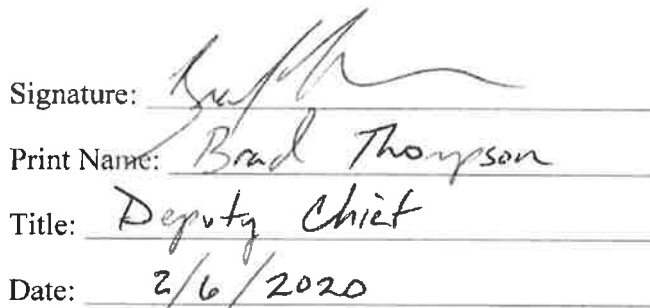 Signature:
Print Name: Brad Thompson
Title: Deputy Chief
Date: 2/6/2020